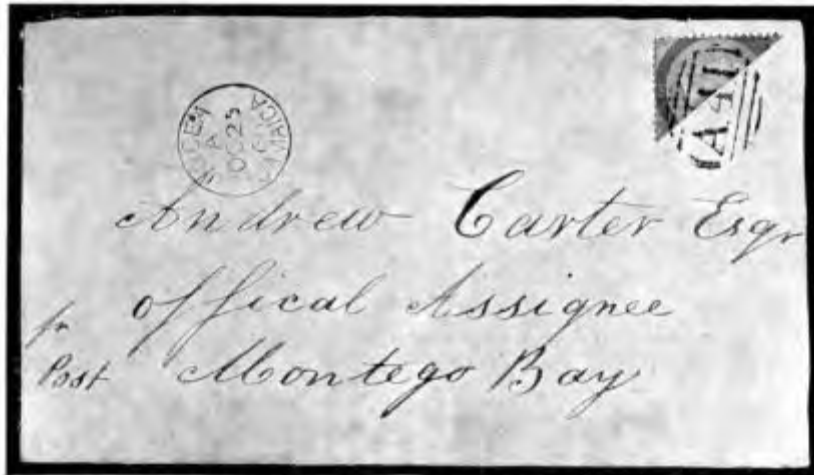 A41
A
OC 25
JAMAICA
Andrew Carter Esqr
offical Assignee
Post Montego Bay